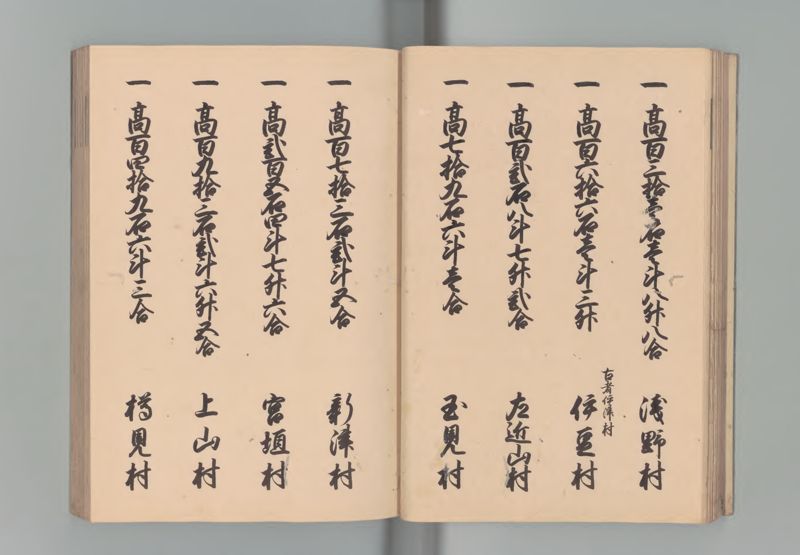 一 高百三拾壱石壱斗八升八合 浅野村
一 高百六拾六石壱斗三升 伊豆村
古者伊津村
一 高百弐石八斗七升弐合 左近山村
一 高七拾九石六斗壱合 玉見村
一 高百七拾三石弐斗五合 新津村
一 高弐百五石四斗七升六合 宮垣村
一 高百九拾三石弐斗六升五合 上山村
一 高百四拾九石六斗三合 樽見村